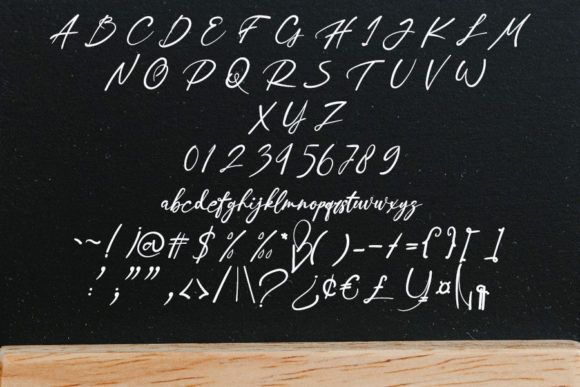 A B C D E F G H I J K L M
N O P Q R S T U V W
X Y Z
0 1 2 3 4 5 6 7 8 9
abcdefghijklmnopqrstuvwxyz
~ ! ¡ @ # $ % ‰ * ( ) – - + = { } [ ]
: ' ; " " , < > / | \ ? ¿ ¢ € £ ¥ ¤ ¶